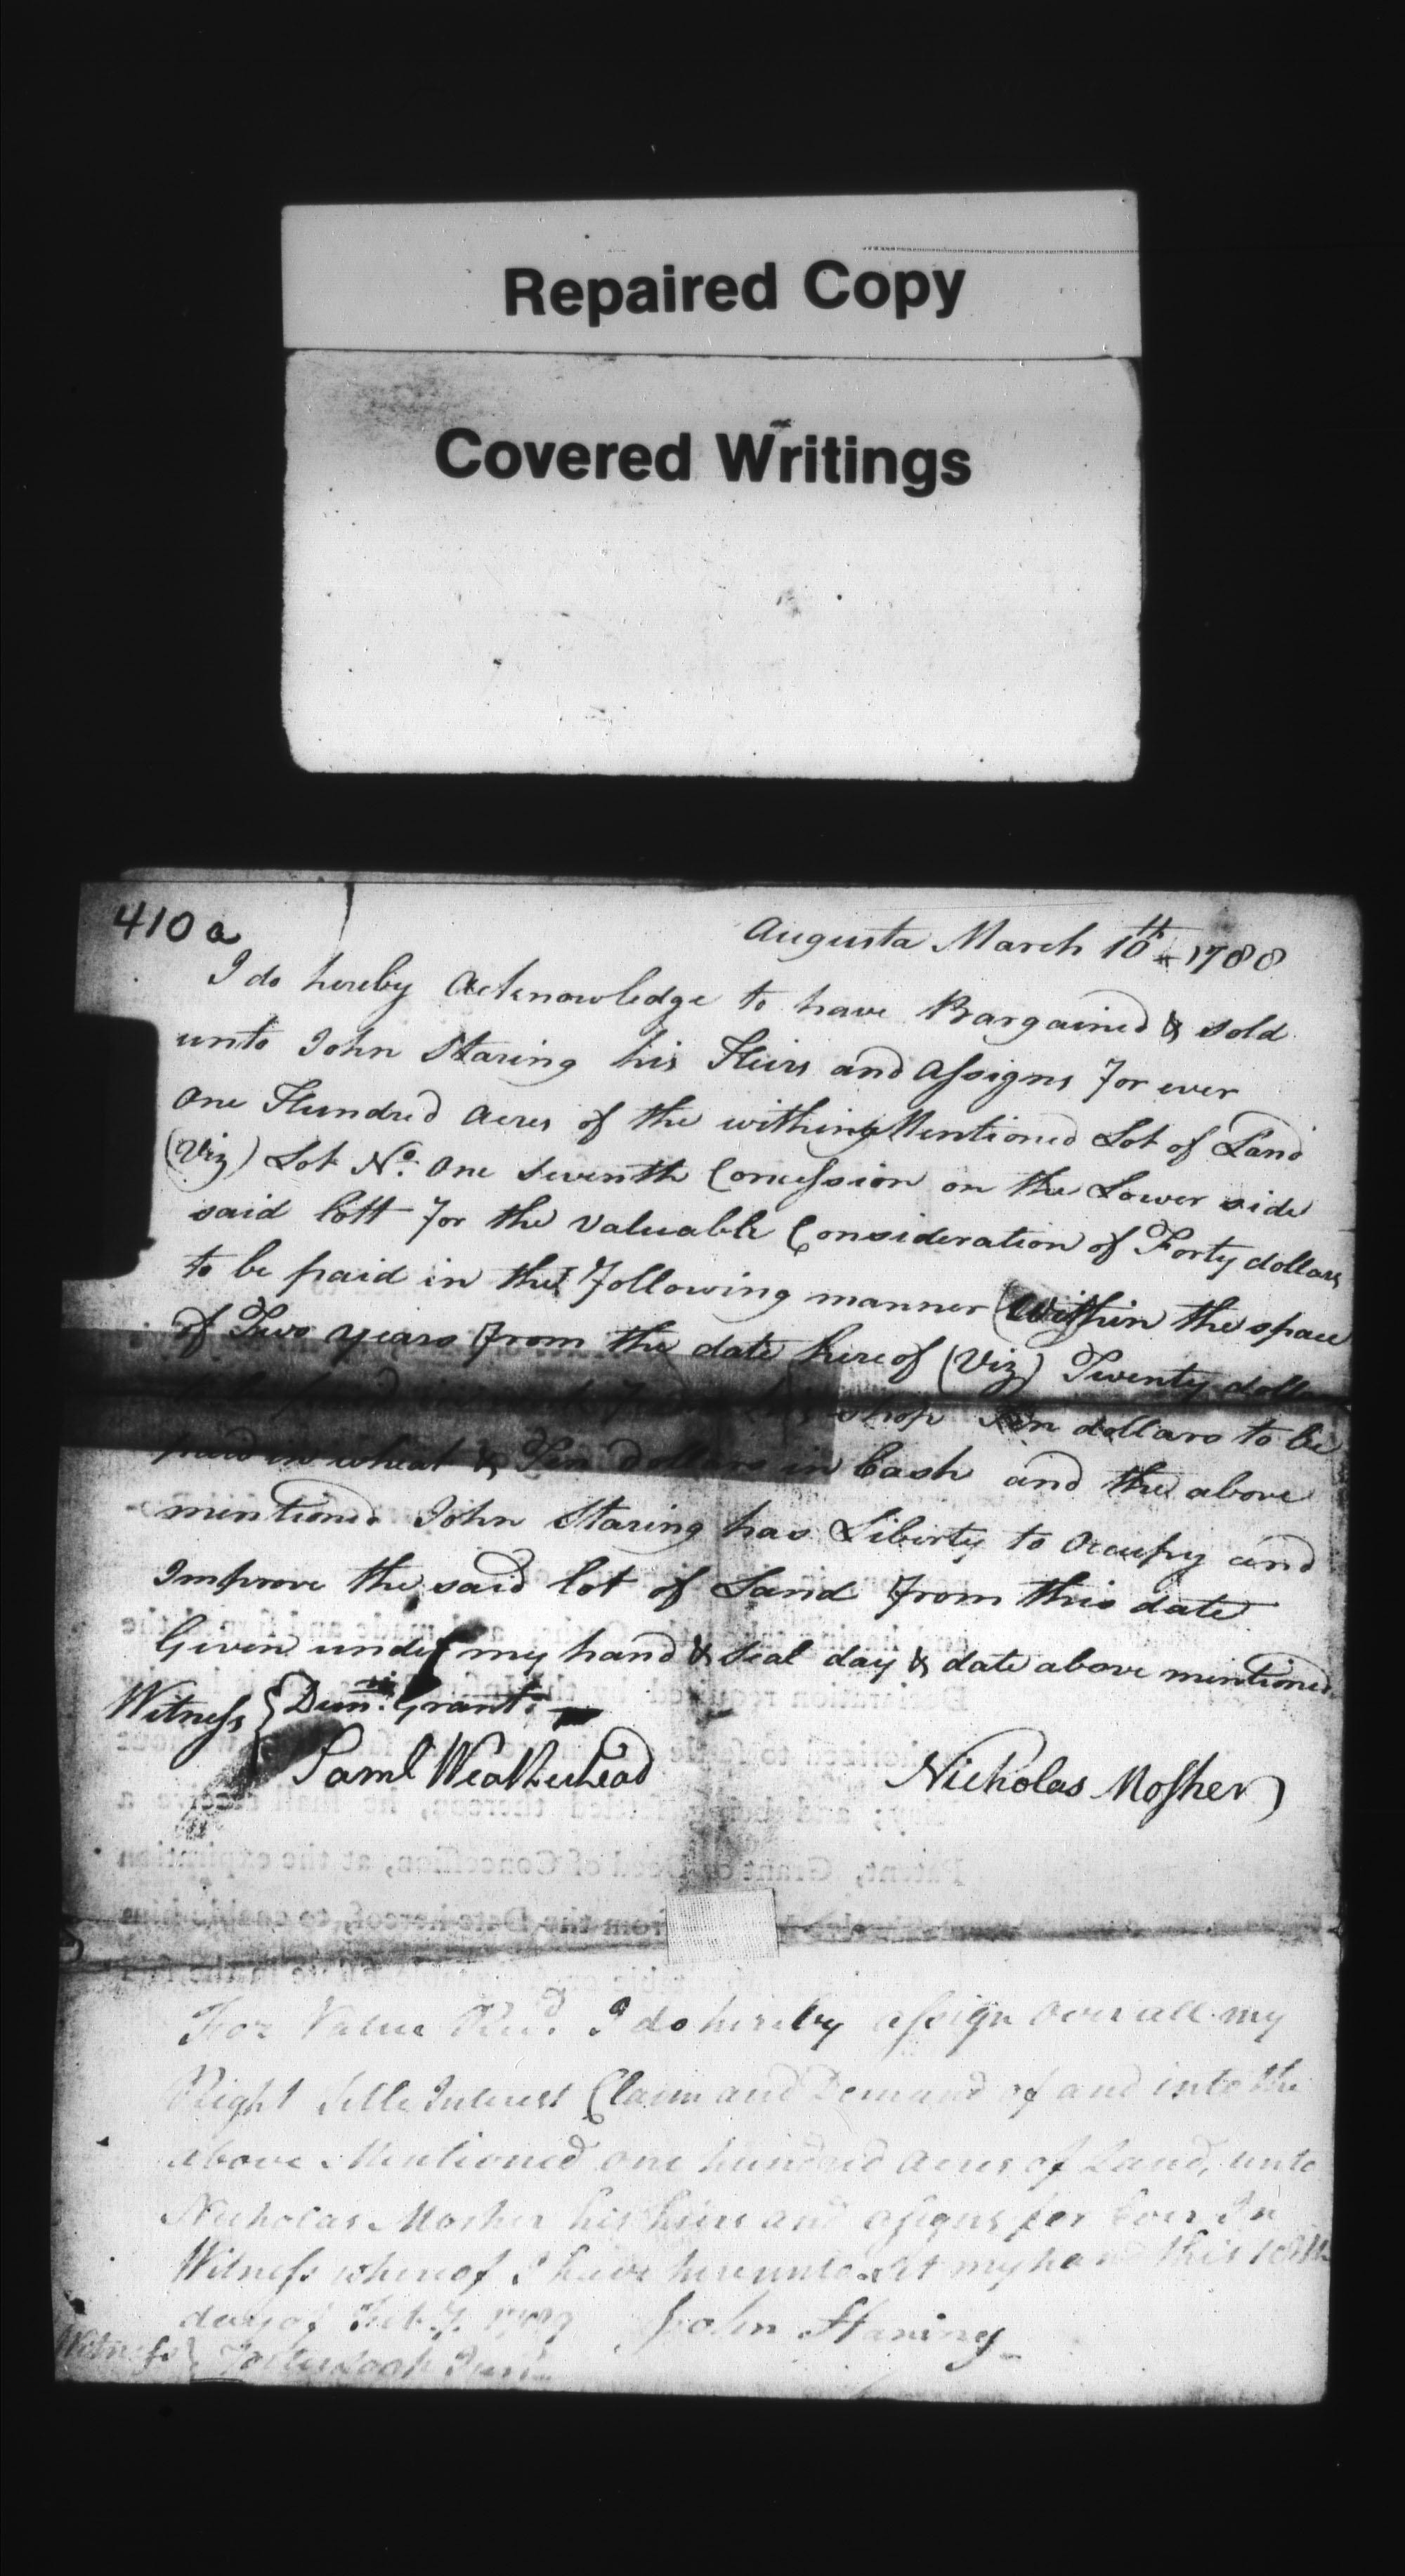 Repaired Copy
Covered Writings
410 a
Augusta March 10th 1788
I do hereby Acknowledge to have Bargained & sold
unto John Staring his Heirs and Assigns For ever
One Hundred Acres of the within Mentioned Lot of Land
(Viz) Lot No. One Seventh Concession on the Lower side
said lott For the Valuable Consideration of Forty dollars
to be paid in the Following manner (Within the space
of Two years From the date hereof (Viz) Twenty
shop Ten dollars to be
paid in wheat & Ten dollars in Cash and the above
mentioned John Staring has Liberty to Occupy and
Improve the said lot of Land From this date
Given under my hand & Seal day & date above mentioned
Witness { Grant
Saml Weatherhead
Nicholas Mosher
For Value Recd. I do hereby assign over all my
Right Interest Claim and Demand of and into the
above Mentioned one hundred acres of Land, unto
Nicholas Mosher his heirs and assigns for Ever In
Witness whereof I have hereunto set my hand this
day of John Staring
Witness